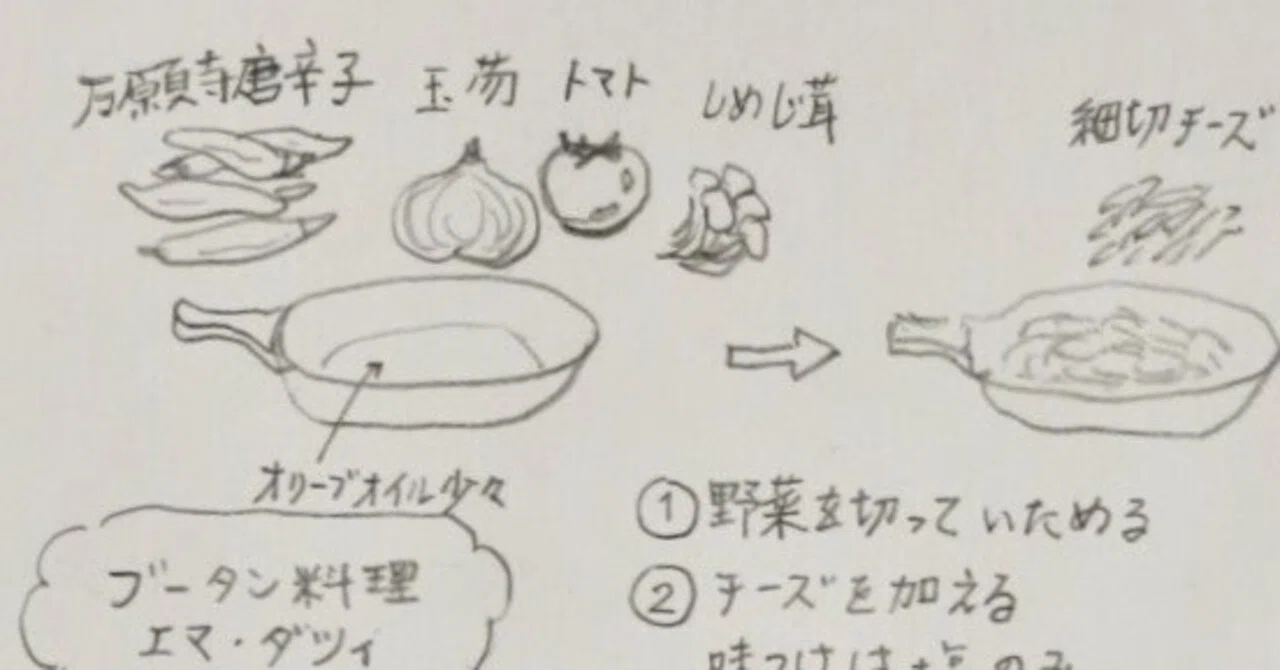 万願寺唐辛子
玉葱
トマト
しめじ茸
細切チーズ
オリーブオイル少々
ブータン料理
エマ・ダツィ
①野菜を切っていためる
②チーズを加える
味つけは塩のみ